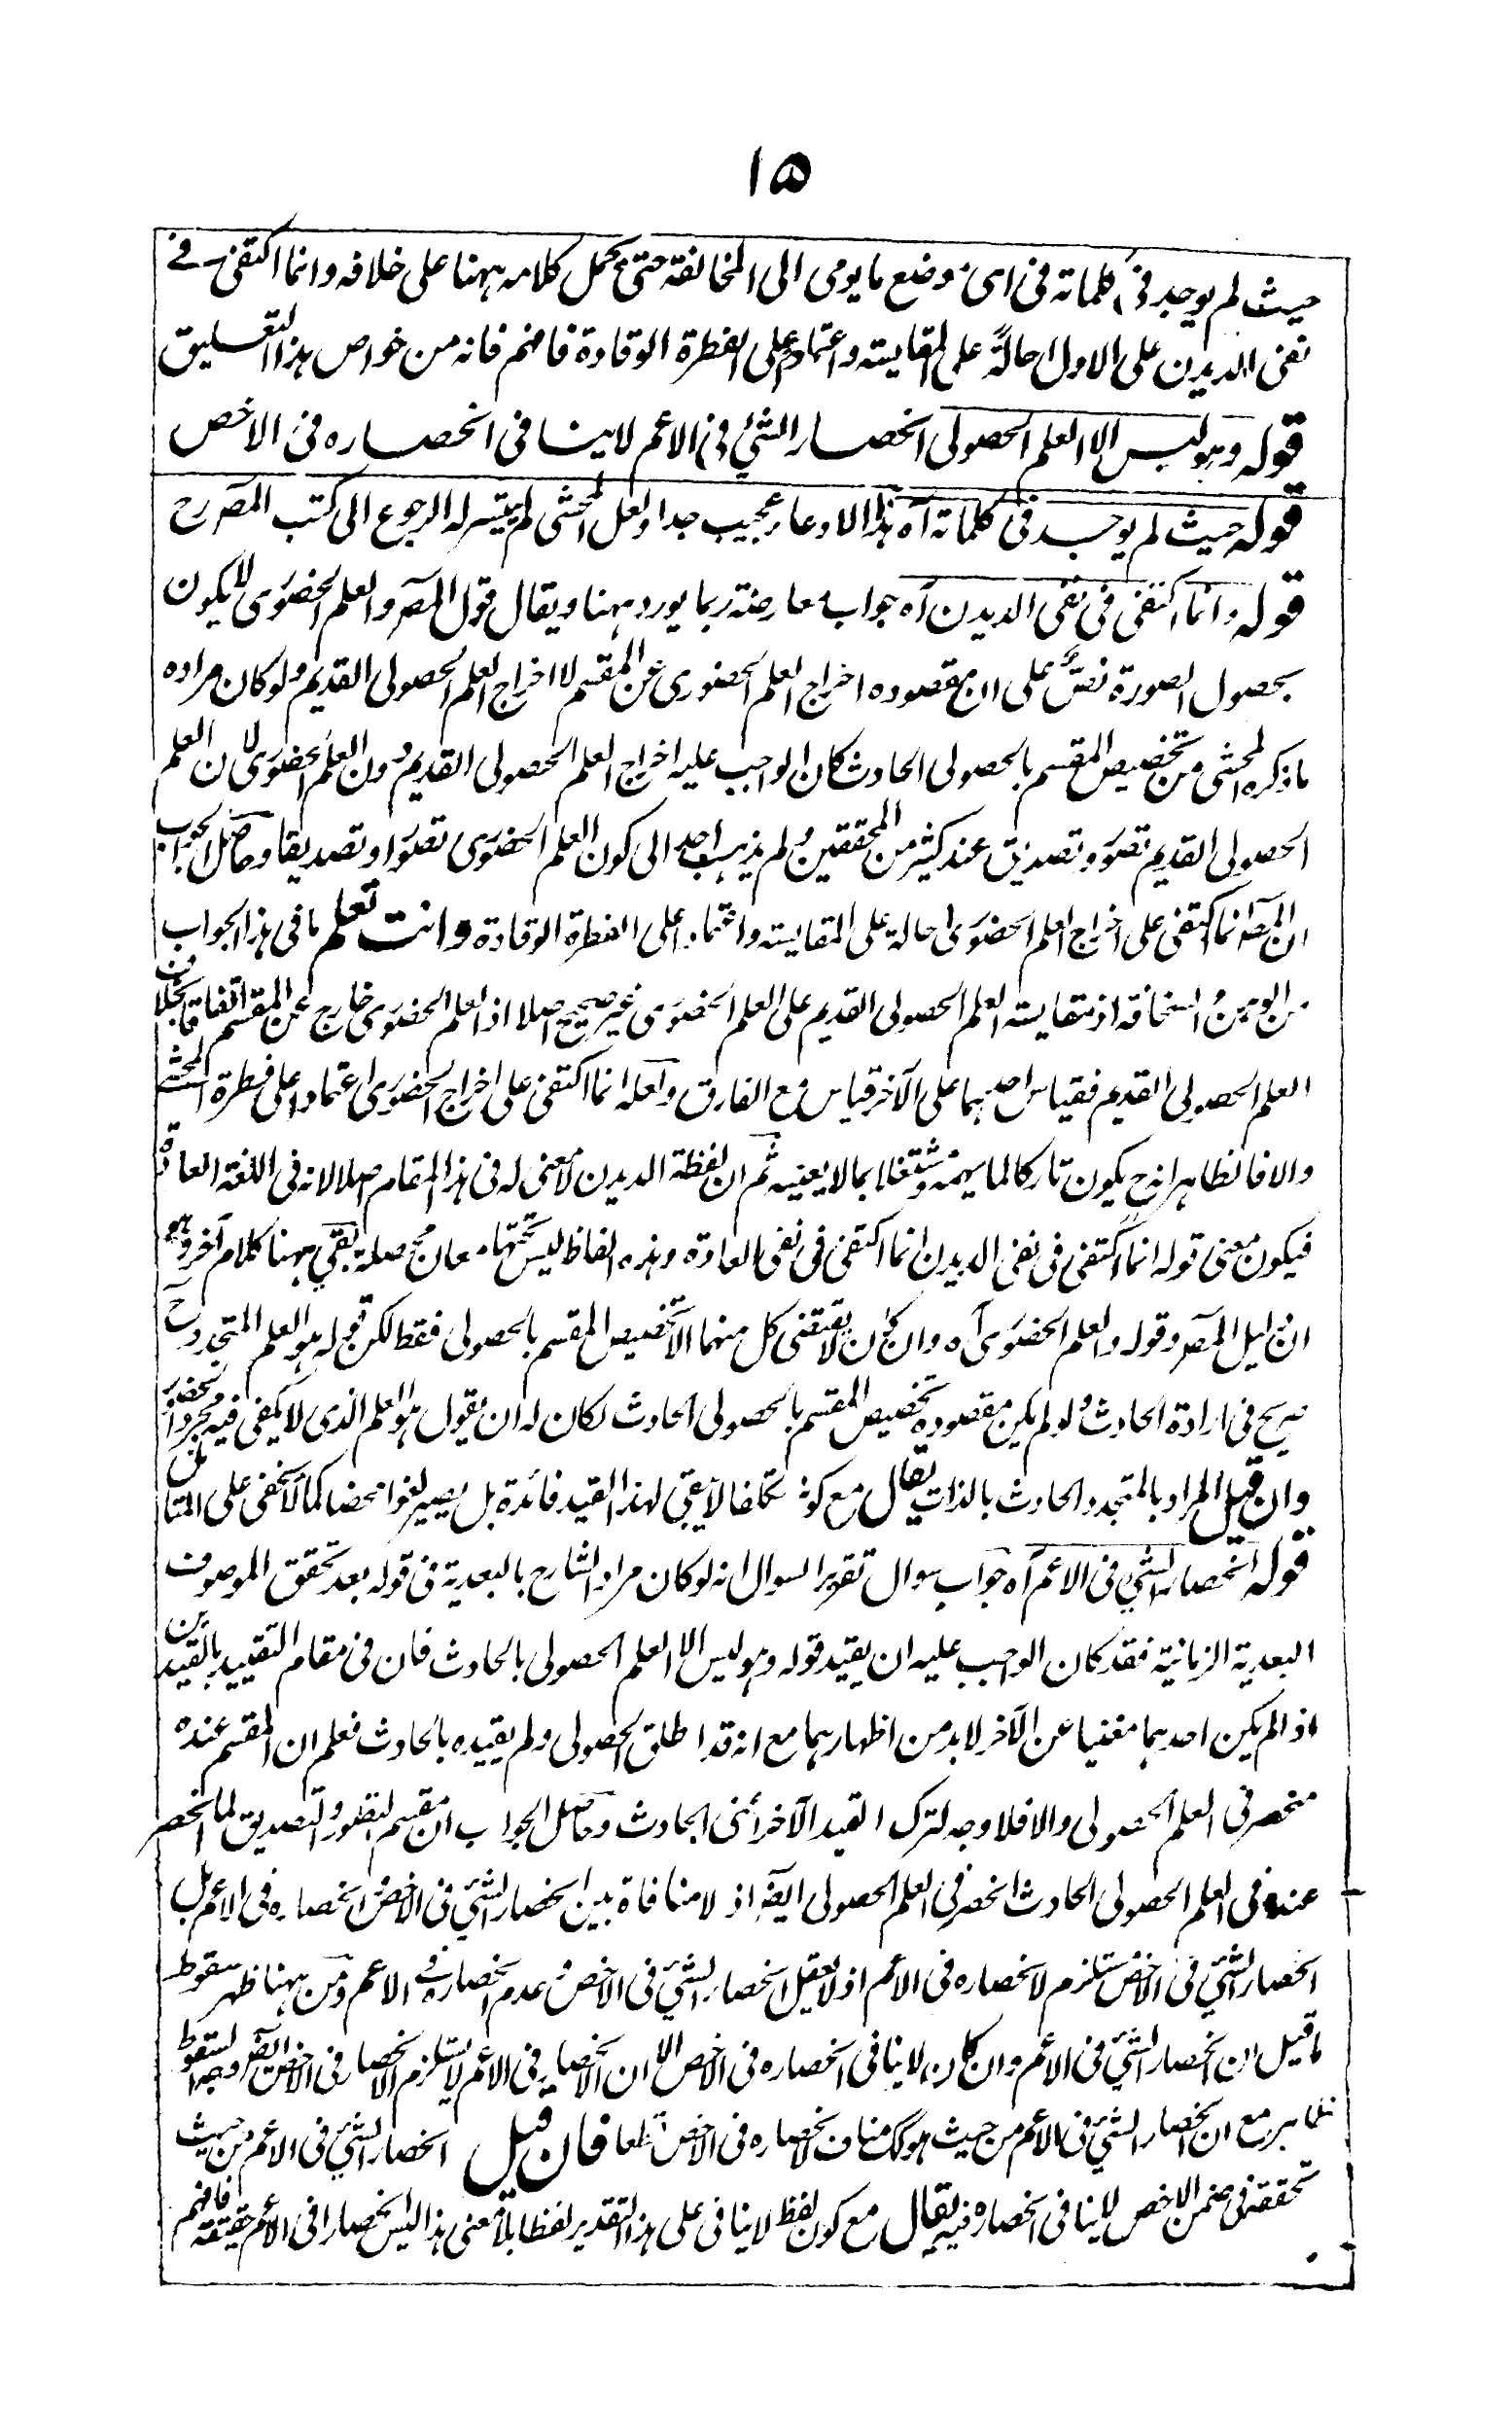 ۱۵
حيث لم يوجد فى كلماته فى اى موضع ما يومى الى المخالفة حتى يحمل كلامه ههنا على خلافه وانما اكتفى فے
نفى الديدن على الاول احالةً على المقايسته واعتمادا على الفطرة الوقادة فافهم فانه من خواص هذا التعليق
قوله وهو ليس الا العلم الحصولى انحصار الشئ فى الاعم لا ينافى انحصاره فى الاخص
قوله حيث لم يوجد فى كلماته آه هذا الادعاء عجيب جدا ولعل المحشى لم يتيسر له الرجوع الى كتب المصرح
قوله وانما اكتفى فى نفى الديدن آه جواب معارضة ربما يورد ههنا ويقال قول المصر والعلم الحضورى لا يكون
بحصول الصورة نصٌ على ان مقصوده اخراج العلم الحضورى عن المقسم لا اخراج العلم الحصولى القديم ولو كان مراده
ما ذكره المحشى من تخصيص المقسم بالحصولى الحادث كان الواجب عليه اخراج العلم الحصولى القديم دون العلم الحضورى لان العلم
الحصولى القديم تصور وتصديق عند كثير من المحققين ولم يذهب احد الى كون العلم الحضورى تصورا وتصديقا وحاصل الجواب
ان المصر انما اكتفى على اخراج العلم الحضورى احالة على المقايسته واعتمادا على الفطرة الوقادة وانت تعلم ما فى هذا الجواب
من الوهن والسخافة اذ مقايسته العلم الحصولى القديم على العلم الحضورى غير صحيح اصلا اذ العلم الحضورى خارج عن المقسم اتفاقا بخلاف
العلم الحصولى القديم فقياس احدهما على الآخر قياس مع الفارق ولعله انما اكتفى على اخراج الحضورى اعتمادا على فطرة المحشے
والا فالظاهر انه ح يكون تاركا لما يهمه ومشتغلا بما لا يعنيه ثم ان لفظة الديدن لا معنى له فى هذا المقام اصلا لانه فى اللغة العادة
فيكون معنى قوله انما اكتفى فى نفى الديدن انما اكتفى فى نفى العادة وهذه الفاظ ليس تحتها معان محصلة بقى ههنا كلام آخر وهو
ان دليل المصر وقوله والعلم الحضورى آه وان كان لا يقتضى كل منهما الا تخصيص المقسم بالحصولى فقط لكن قوله هو العلم المتجدد ح
صريح فى ارادة الحادث ولو لم يكن مقصوده تخصيص المقسم بالحصولى الحادث لكان له ان يقول هو العلم الذى لا يكفى فيه مجرد الحضور
وان قيل المراد بالمتجدد الحادث بالذات يقال مع كونه تكلفا لا يبقى لهذا القيد فائدة بل يصير لغوا محضا كما لا يخفى على المتامل
قوله انحصار الشئ فى الاعم آه جواب سوال تقرير السوال انه لو كان مراد الشارح بالبعدية فى قوله بعد تحقق الموصوف
البعدية الزمانية فقد كان الواجب عليه ان يقيد قوله وهو ليس الا العلم الحصولى بالحادث فان فى مقام التقييد بالقيدين
اذا لم يكن احدهما مغنيا عن الآخر لا بد من اظهارهما مع انه قد اطلق الحصولى ولم يقيده بالحادث فعلم ان المقسم عنده
منحصر فى العلم الحصولى والا فلا وجه لترك القيد الآخر اعنى الحادث وحاصل الجواب ان مقسم التصور والتصديق لما انحصر
عنده فى العلم الحصولى الحادث انحصر فى العلم الحصولى ايضا اذ لا منافاة بين انحصار الشئ فى الاخص وانحصاره فى الاعم بل
انحصار الشئ فى الاخص مستلزم لانحصاره فى الاعم اذ لا يعقل انحصار الشئ فى الاخص وعدم انحصاره فى الاعم ومن ههنا ظهر سقوط
ما قيل ان انحصار الشئ فى الاعم وان كان لا ينافى انحصاره فى الاخص الا ان الانحصار فى الاعم لا يستلزم الانحصار فى الاخص ايضا وجه السقوط
ظاهر مع ان انحصار الشئ فى الاعم من حيث هو كك مناف لانحصاره فى الاخص قطعا فان قيل انحصار الشئ فى الاعم من حيث
تحققه فى ضمن الاخص لا ينافى انحصاره فيه يقال مع كون لفظ لا ينافى على هذا التقدير لفظا بلا معنى هذا ليس انحصارا فى الاعم حقيقة فافهم